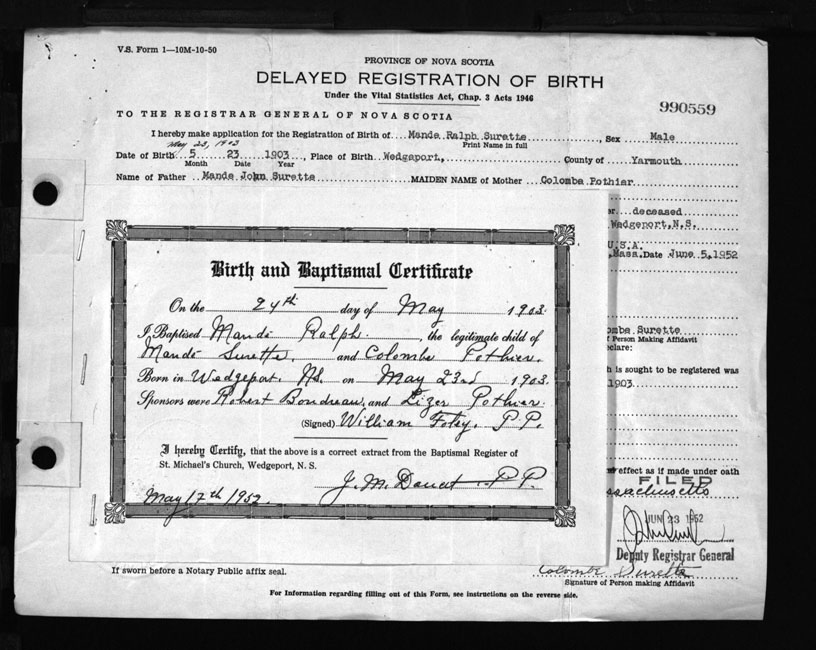 V.S. Form 1—10M-10-50
PROVINCE OF NOVA SCOTIA
DELAYED REGISTRATION OF BIRTH
Under the Vital Statistics Act, Chap. 3 Acts 1946
990559
TO THE REGISTRAR GENERAL OF NOVA SCOTIA
I hereby make application for the Registration of Birth of Mande Ralph Surette, Sex Male
Print Name in full
May 23, 1903
Date of Birth 5 23 1903, Place of Birth Wedgeport, County of Yarmouth
Month Date Year
Name of Father Mande John Surette MAIDEN NAME of Mother Colombe Pothier
er deceased
Wedgeport, N.S.
U.S.A.
Mass. Date June 5, 1952
Birth and Baptismal Certificate
On the 24th day of May 1903
I Baptised Mandé Ralph, the legitimate child of
Mandé Surette and Colombe Pothier.
Born in Wedgeport, N.S. on May 23rd 1903
Sponsors were Robert Boudreau and Lizer Pothier
(Signed) William Foley, P.P.
I hereby Certify, that the above is a correct extract from the Baptismal Register of
St. Michael's Church, Wedgeport, N. S.
J. M. Doucet P.P.
May 17th 1952.
ombe Surette
of Person Making Affidavit
clare:
h is sought to be registered was
1903
effect as if made under oath
FILED
ssachusetts
JUN 23 1952
Deputy Registrar General
If sworn before a Notary Public affix seal.
Colombe Surette
Signature of Person making Affidavit
For Information regarding filling out of this Form, see instructions on the reverse side.